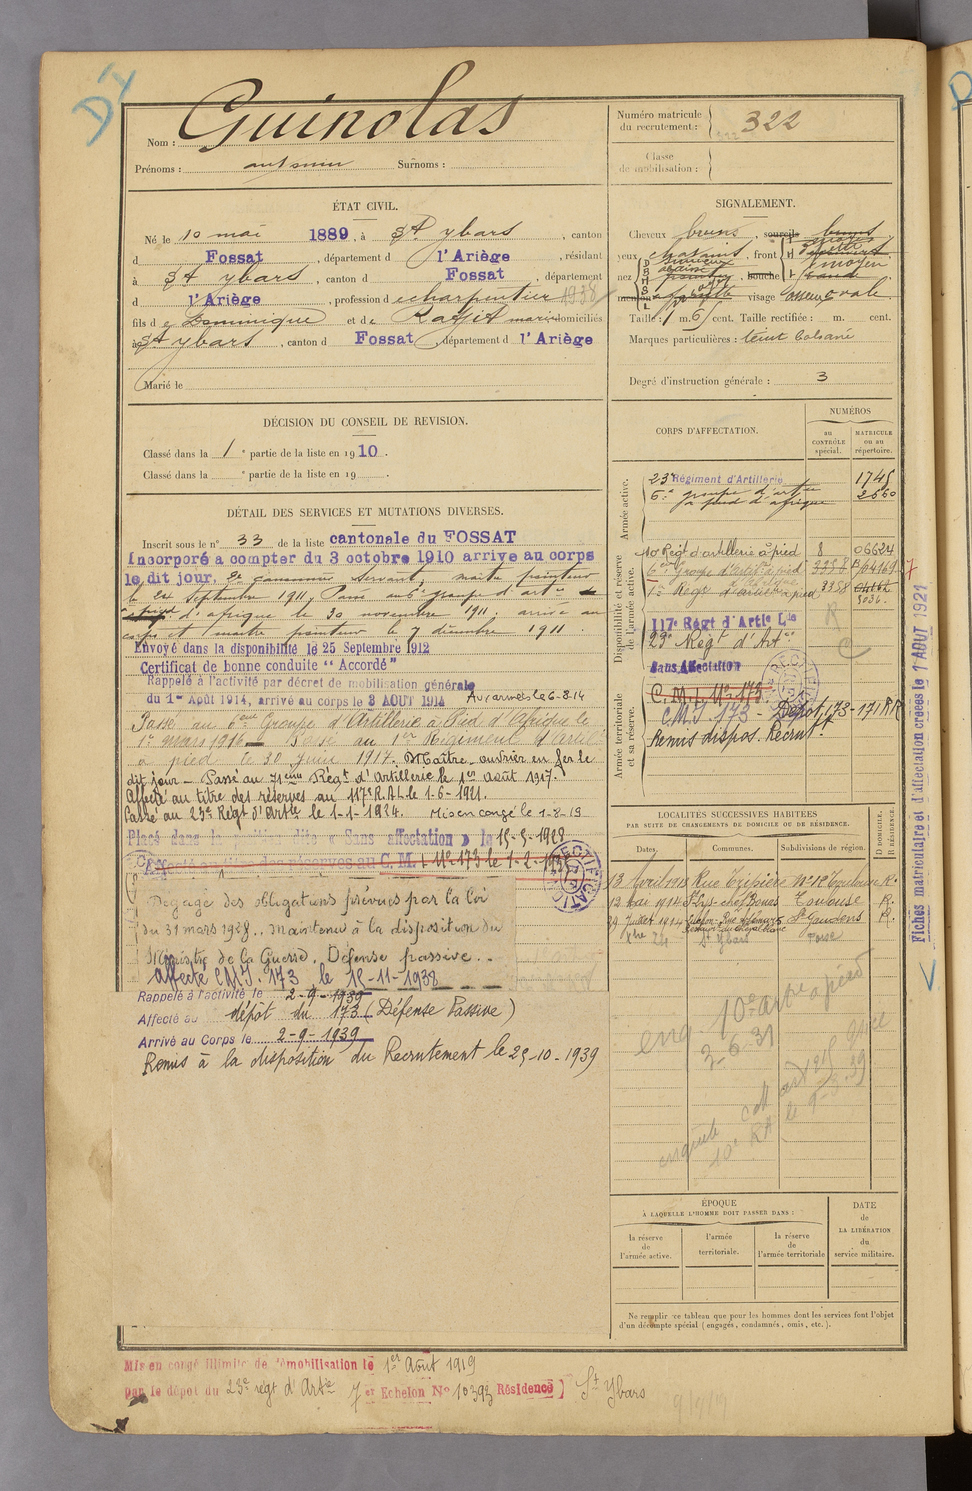 Nom : Guinolas
Prénoms : Surnoms :
Numéro matricule du recrutement : 322
Classe de mobilisation :
ÉTAT CIVIL.
Né le 10 mai 1889, à St Ybars, canton
d Fossat, département d l'Ariège, résidant
à St Ybars, canton d Fossat, département
d l'Ariège, profession de charpentier 1938
fils de Dominique et de domiciliés
à St Ybars, canton d Fossat, département d l'Ariège
Marié le
SIGNALEMENT.
Cheveux bruns, sourcils bruns
yeux chatains, front
nez bouche moyen
menton visage osseux ovale
Taille : 1 m. 6 cent. Taille rectifiée : m. cent.
Marques particulières : teint basané
Degré d'instruction générale : 3
DÉCISION DU CONSEIL DE REVISION.
Classé dans la 1e partie de la liste en 1910.
Classé dans la e partie de la liste en 19 .
DÉTAIL DES SERVICES ET MUTATIONS DIVERSES.
Inscrit sous le n° 33 de la liste cantonale du FOSSAT
Incorporé a compter du 3 octobre 1910 arrive au corps
le dit jour, 2e canonnier servant, maitre pointeur
le 24 septembre 1911, Passé au 6e groupe d'artie
à pied d'afrique le 30 novembre 1911. arrivé au
corps et maitre pointeur le 7 décembre 1911
Envoyé dans la disponibilité le 25 Septembre 1912
Certificat de bonne conduite “ Accordé ”
Rappelé à l'activité par décret de mobilisation générale
du 1er Août 1914, arrivé au corps le 3 AOUT 1914 Aux armées le 6-8-14
Passé au 6eme Groupe d'Artillerie à Pied d'Afrique le
1er mars 1916 Passé au 1er Régiment d'Artil
à pied le 30 juin 1917. Maître-ouvrier en fer le
dit jour - Passé au 71eme Régt d'Artillerie le 1er août 1917.
Affecté au titre des réserves au 117e R.A.L le 1-6-1921.
Passé au 23e Régt d'Artie le 1-1-1924. Mis en congé le 1-8-19
Placé dans la position dite « Sans affectation » le 15-5-1928
Affecté au titre des réserves au C.M. I. N° 173 le 1-2-
Dégagé des obligations prévues par la loi
du 31 mars 1928.. maintenu à la disposition du
Ministre de la Guerre. Défense passive. -
Affecté C.M.I. 173 le 15-11-1938
Rappelé à l'activité le 2-9-1939
Affecté au dépôt du 173 (Défense Passive)
Arrivé au Corps le 2-9-1939
Remis à la disposition du Recrutement le 25-10-1939
CORPS D'AFFECTATION.
NUMÉROS
au CONTRÔLE spécial.
MATRICULE ou au répertoire.
Armée active.
23e Régiment d'Artillerie 1745
6e groupe d'artie à pied d'afrique 2560
Disponibilité et réserve de l'armée active.
10e Régt d'artillerie à pied 8 06624
6e Groupe d'Artie à pied d'Afrique
1er Régt d'artie à pied 3358
117e Régt d'Artie Lde
23e Régt d'Artie
Sans Affectation
Armée territoriale et sa réserve.
C.M.I. N° 173
C.M.I. 173 - Dépot 173 - 171 RR
Remis dispos. Recrutt
LOCALITÉS SUCCESSIVES HABITÉES
PAR SUITE DE CHANGEMENTS DE DOMICILE OU DE RÉSIDENCE.
Dates. Communes. Subdivisions de région. D DOMICILE. R RÉSIDENCE.
13 Avril 1913 Rue Tripière N° 12 Toulouse R.
12 Mai 1914 Toulouse R.
29 Juillet 1914 St Gaudens R.
St Ybars
eng 10e artie à pied
3-6-31
ÉPOQUE
À LAQUELLE L'HOMME DOIT PASSER DANS :
la réserve de l'armée active.
l'armée territoriale.
la réserve de l'armée territoriale
DATE de LA LIBÉRATION du service militaire.
Ne remplir ce tableau que pour les hommes dont les services font l'objet
d'un décompte spécial (engagés, condamnés, omis, etc.).
Mis en congé illimité de démobilisation le 1er Août 1919
par le dépôt du 23e régt d'Artie 7e Echelon N° 10392 Résidence St Ybars
Fiches matriculaire et d'affectation créées le 1 AOUT 1921